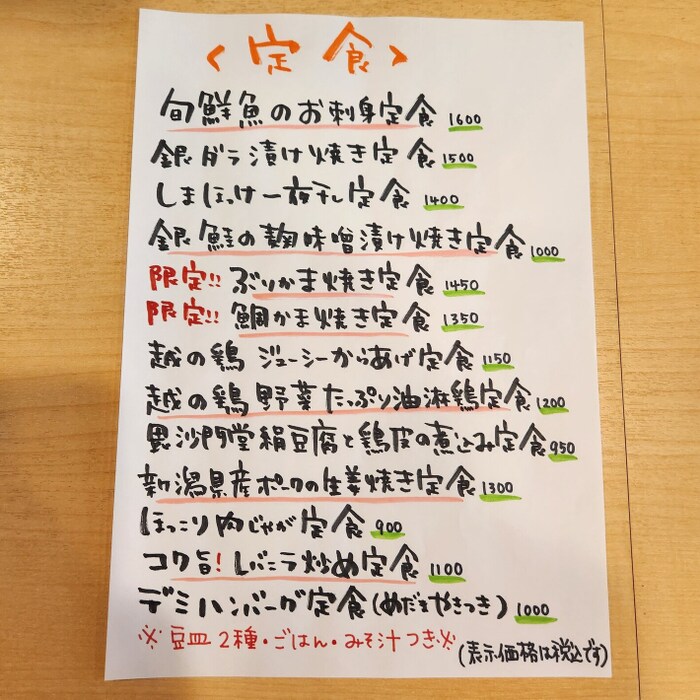 <定食>
旬鮮魚のお刺身定食 1600
銀ダラ漬け焼き定食 1500
しまほっけ一夜干し定食 1400
銀鮭の麹味噌漬け焼き定食 1000
限定!! ぶりかま焼き定食 1450
限定!! 鯛かま焼き定食 1350
越の鶏 ジューシーからあげ定食 1150
越の鶏 野菜たっぷり油淋鶏定食 1200
毘沙門堂絹豆腐と鶏皮の煮込み定食 950
新潟県産ポークの生姜焼き定食 1300
ほっこり肉じゃが定食 900
コク旨! レバニラ炒め定食 1100
デミハンバーグ定食(めだまやきつき) 1000
※豆皿2種・ごはん・みそ汁つき※
(表示価格は税込です)